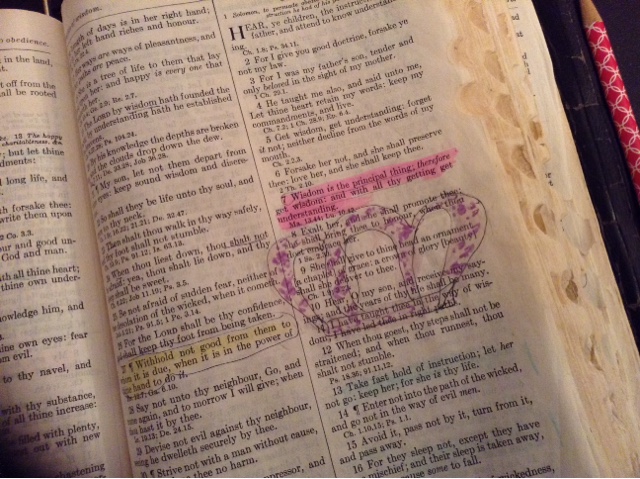 o obedience.
in the land,
t off from the
all be rooted
13 The happy
; but let thine
dments:
long life, and
h forsake thee:
write them upon
Co. 3.3.
our and good un-
God and man.
ith all thine heart;
thine own under-
owledge him, and
ine own eyes: fear
om evil.
to thy navel, and
ith thy substance,
of all thine increase:
filled with plenty,
st out with new
wisdom.
ngth of days is in her right hand;
left hand riches and honour.
ways are ways of pleasantness, and
are peace.
a tree of life to them that lay
her: and happy is every one that
her.
2.9; Re. 2.7.
LORD by wisdom hath founded the
understanding hath he established
104.24.
his knowledge the depths are broken
clouds drop down the dew.
Job 36.28.
My son, let not them depart from
eyes: keep sound wisdom and discre-
shall they be life unto thy soul, and
thy neck.
De. 32.47.
Then shalt thou walk in thy way safely,
thy foot shall not stumble.
Ps. 91.12; Pr. 63.13.
When thou liest down, thou shalt not
yea, thou shalt lie down, and thy
shall be sweet.
Job 11.19; Ps. 3.5.
Be not afraid of sudden fear, neither
desolation of the wicked, when it cometh
Ps. 91.5; 1 Pe. 3.14.
For the LORD shall be thy confidence,
shall keep thy foot from being taken.
¶ Withhold not good from them to
whom it is due, when it is in the power of
hand to do it.
Ga. 6.10.
Say not unto thy neighbour, Go, and
come again, and to morrow I will give; when
hast it by thee.
Le. 19.13; De. 24.15.
Devise not evil against thy neighbour,
he dwelleth securely by thee.
¶ Strive not with a man without cause,
thee no harm.
oppressor, and
1 Solomon, to persuade
HEAR, ye children, the instruction
father, and attend to know understand-
ing.
Ch. 1.8; Ps. 34.11.
2 For I give you good doctrine, forsake ye
not my law.
3 For I was my father's son, tender and
only beloved in the sight of my mother.
1 Ch. 29.1.
4 He taught me also, and said unto me,
Let thine heart retain my words: keep my
commandments, and live.
Ch. 7.2; 1 Ch. 28.9; Ep. 6.4.
5 Get wisdom, get understanding: forget
it not; neither decline from the words of my
mouth.
Ch. 2.2,3.
6 Forsake her not, and she shall preserve
thee: love her, and she shall keep thee.
2 Th. 2.10.
7 Wisdom is the principal thing; therefore
get wisdom: and with all thy getting get
understanding.
8 Exalt her, and she shall promote thee:
she shall bring thee to honour, when thou
dost embrace her.
9 She shall give to thine head an ornament
of grace: a crown of glory
shall she deliver to thee.
10 Hear, O my son, and receive my say-
ings; and the years of thy life shall be many.
11 I have taught thee in the way of wis-
dom;
12 When thou goest, thy steps shall not be
straitened; and when thou runnest, thou
shalt not stumble.
Ps. 18.36; 91.11,12.
13 Take fast hold of instruction; let her
not go: keep her; for she is thy life.
14 ¶ Enter not into the path of the wicked,
and go not in the way of evil men.
Ch. 1.10,15; Ps. 1.1.
15 Avoid it, pass not by it, turn from it,
and pass away.
16 For they sleep not, except they have
mischief; and their sleep is taken away,
cause some to fall.
wickedness,